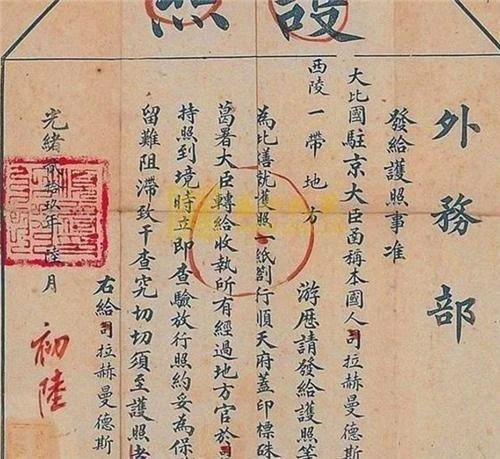 護照
外務部
發給護照事准
大比國駐京大臣函稱本國人司拉赫曼德斯
西陵一帶地方
游歷請發給護照等
為此繕就護照一紙劄行順天府蓋印標硃
葛署大臣轉給收執所有經過地方官於司
持照到境時立即查驗放行照約妥為保
留難阻滯致干查究切切須至護照者
右給司拉赫曼德斯
光緒貳拾玖年 陸月
初陸